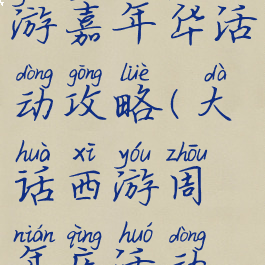 游嘉年华活
dòng gōng lüè dà
动攻略(大
huà xī yóu zhōu
话西游周
nián qìng huó dòng
年庆活动